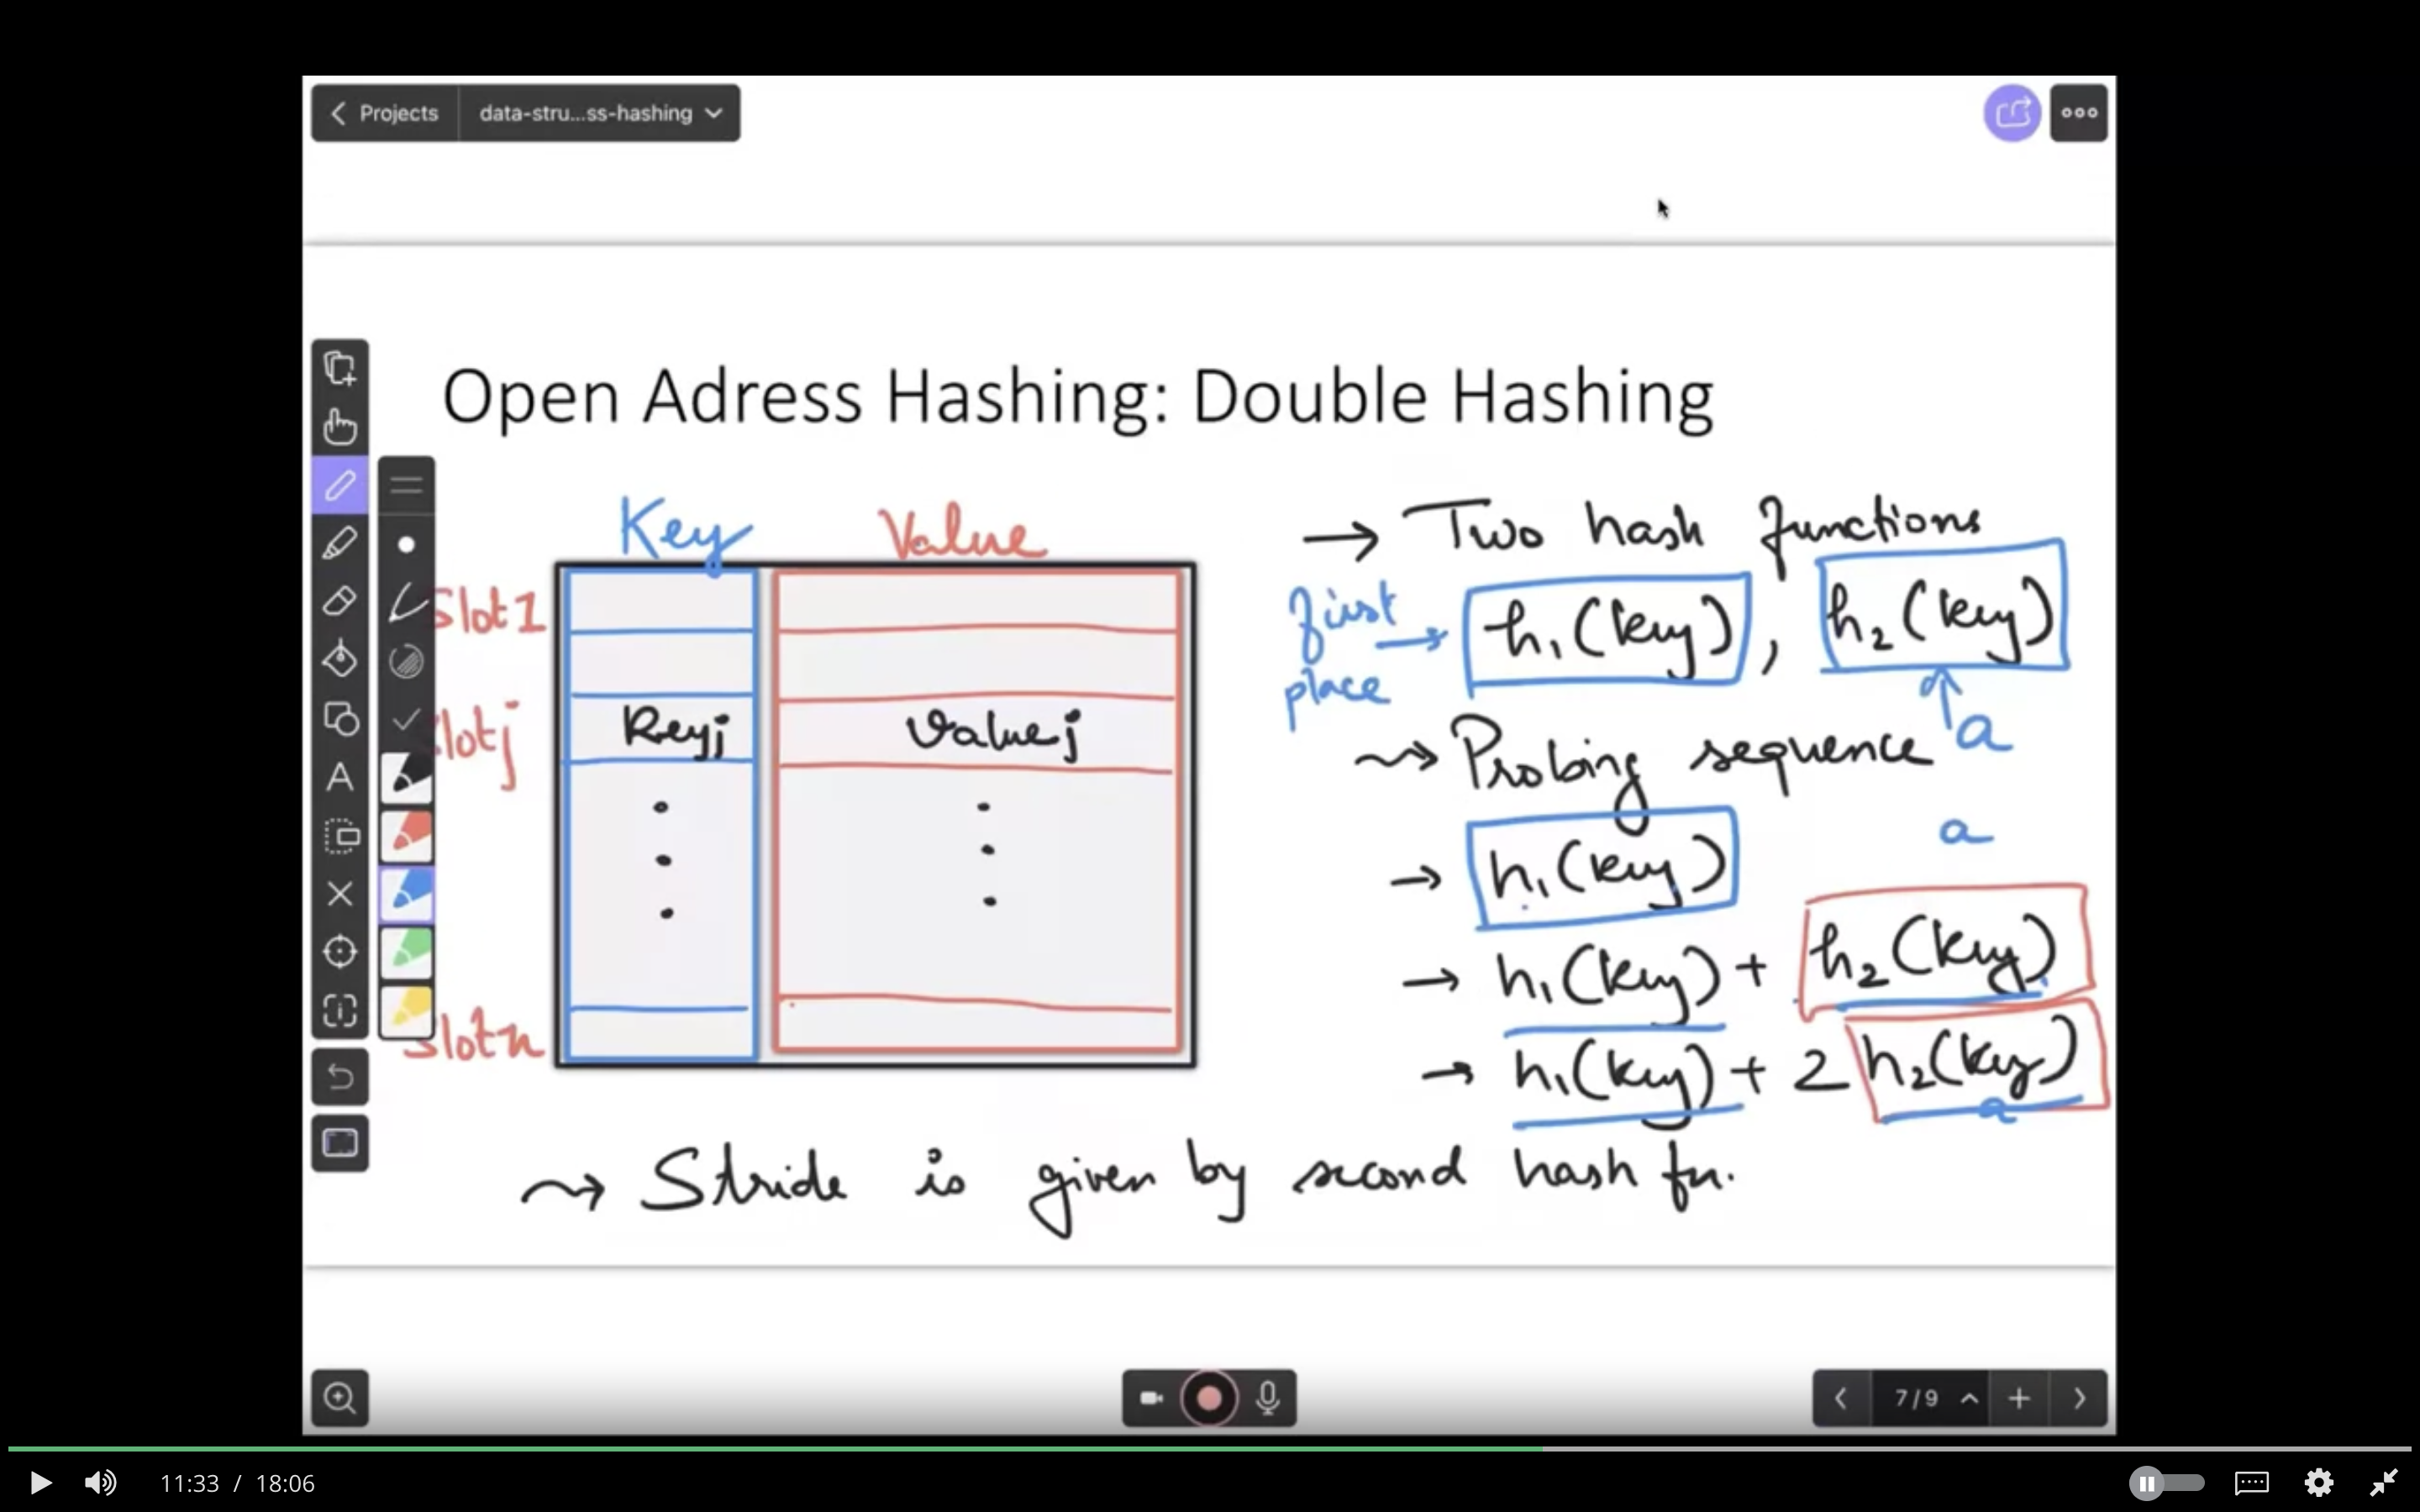 Projects data-stru...ss-hashing
Open Adress Hashing: Double Hashing
Key Value
Slot1
Slotj Keyj Valuej
Slotn
→ Two hash functions
first place → h₁(key), h₂(key)
a
⇝ Probing sequence
a
→ h₁(key)
→ h₁(key) + h₂(key)
→ h₁(key) + 2 h₂(key)
a
⇝ Stride is given by second hash fn.
7/9
11:33 / 18:06